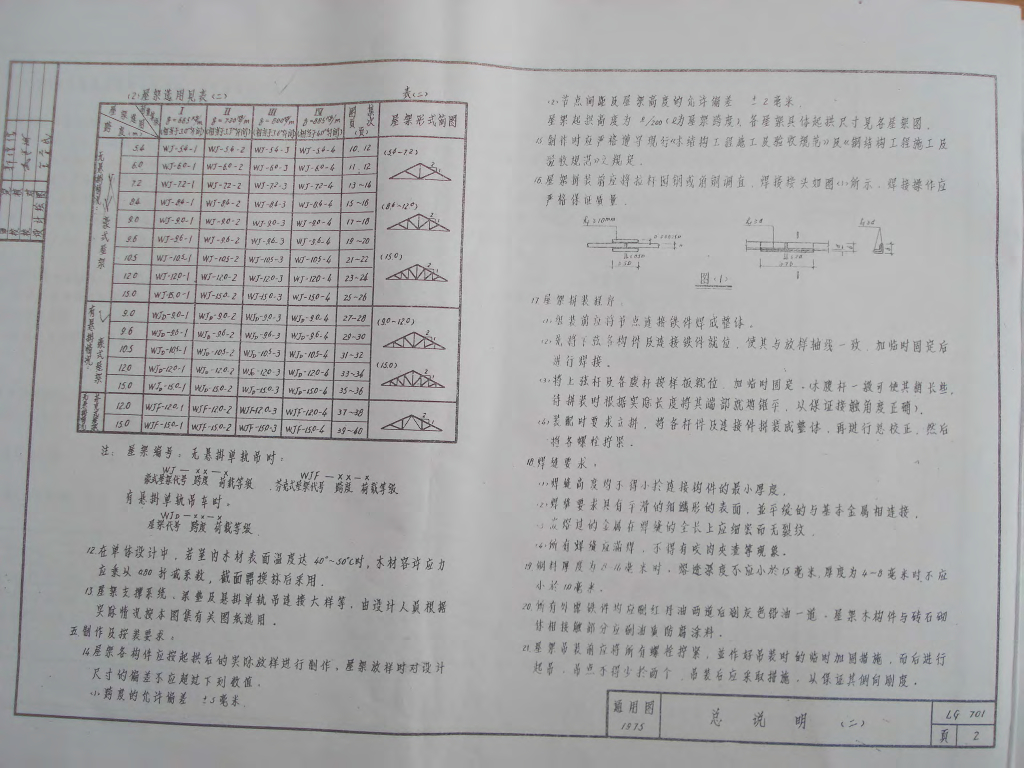 (2)屋架选用见表(二)
表(二)
屋架形式 跨度(m) 荷载等级 I II III IV 图目 页次(页) 屋架形式简图
无悬挂情况 豪式屋架
5.4 WJ-54-1 WJ-54-2 WJ-54-3 WJ-54-4 10.12 (5.4-7.2)
6.0 WJ-60-1 WJ-60-2 WJ-60-3 WJ-60-4 11.12
7.2 WJ-72-1 WJ-72-2 WJ-72-3 WJ-72-4 13-14
8.4 WJ-84-1 WJ-84-2 WJ-84-3 WJ-84-4 15-16 (8.4-12.0)
9.0 WJ-90-1 WJ-90-2 WJ-90-3 WJ-90-4 17-18
9.6 WJ-96-1 WJ-96-2 WJ-96-3 WJ-96-4 19-20
10.5 WJ-105-1 WJ-105-2 WJ-105-3 WJ-105-4 21-22 (15.0)
12.0 WJ-120-1 WJ-120-2 WJ-120-3 WJ-120-4 23-24
15.0 WJ-150-1 WJ-150-2 WJ-150-3 WJ-150-4 25-26
有悬挂情况 豪式屋架
9.0 WJD-90-1 WJD-90-2 WJD-90-3 WJD-90-4 27-28 (9.0-12.0)
9.6 WJD-96-1 WJD-96-2 WJD-96-3 WJD-96-4 29-30
10.5 WJD-105-1 WJD-105-2 WJD-105-3 WJD-105-4 31-32
12.0 WJD-120-1 WJD-120-2 WJD-120-3 WJD-120-4 33-34 (15.0)
15.0 WJD-150-1 WJD-150-2 WJD-150-3 WJD-150-4 35-36
12.0 WJF-120-1 WJF-120-2 WJF-120-3 WJF-120-4 37-38
15.0 WJF-150-1 WJF-150-2 WJF-150-3 WJF-150-4 39-40
注: 屋架编号:无悬挂单轨吊时:
WJ-xx-x WJF-xx-x
豪式屋架代号 跨度 荷载等级 芬克式屋架代号 跨度 荷载等级
有悬挂单轨吊车时。
WJD-xx-x
屋架代号 跨度 荷载等级
12.在单体设计中,若室内木材表面温度达40°~50°C时,木材容许应力
应乘以0.80折减系数,截面需换标后采用.
13.屋架支撑系统、梁垫及悬挂单轨吊连接大样等,由设计人员根据
实际情况按本图集有关图纸选用.
五.制作及按装要求。
14.屋架各构件应按起拱后的实际放样进行制作,屋架放样时对设计
尺寸的偏差不应超过下列数值.
(1)跨度的允许偏差 ±5毫米.
(2)节点间距及屋架高度的允许偏差 ±2毫米.
屋架起拱高度为 l/200(l为屋架跨度),各屋架具体起拱尺寸见各屋架图.
15.制作时应严格遵守现行《木结构工程施工及验收规范》及《钢结构工程施工及
验收规范》之规定.
16.屋架拼装前应将拉杆圆钢或角钢调直,焊接接头如图(1)所示,焊接操作应
严格保证质量.
图(1)
17.屋架拼装程序:
(1)组装前应将节点连接铁件焊成整体.
(2)先将下弦各构件及连接铁件就位,使其与放样轴线一致,加临时固定后
进行焊接.
(3)将上弦杆及各腹杆按样板就位,加临时固定.(木腹杆一般可使其稍长些,
待拼装时根据实际长度将其端部就地锯平,以保证接触角度正确).
(4)装配时要求立拼,将各杆件及连接件拼装成整体,再进行总校正,然后
将各螺栓拧紧.
18.焊缝要求:
(1)焊缝高度均不得小於连接构件的最小厚度.
(2)焊缝要求具有平滑的细鳞形的表面,並平缓的与基本金属相连接.
(3)在焊缝的金属在焊缝的全长上应细密而无裂纹.
(4)所有焊缝应满焊,不得有咬肉夹渣等现象.
19.钢料厚度为8-16毫米时,熔透深度不应小於1.5毫米,厚度为4-8毫米时不应
小於1.0毫米.
20.所有外露铁件均应刷红丹油两道后刷灰色铅油一道,屋架木构件与砖石砌
体相接触部分应刷油质防腐涂料.
21.屋架吊装前应将所有螺栓拧紧,並作好吊装时的临时加固措施,而后进行
起吊,吊点不得少於两个,吊装后应采取措施,以保证其侧向刚度.
通用图
1975
总说明(二)
LG 701
页 2